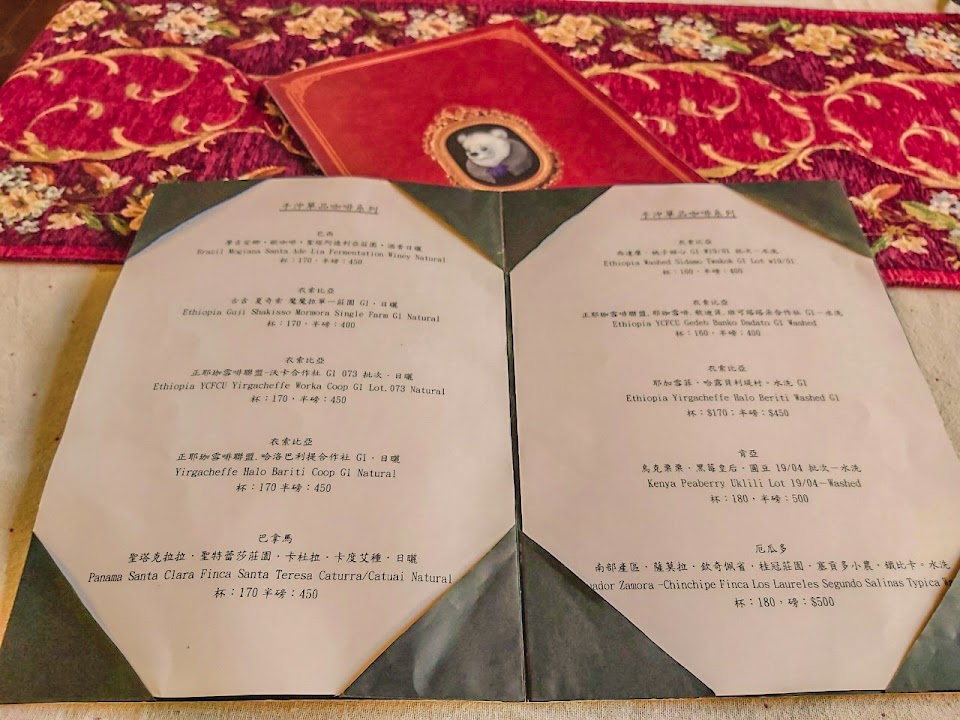 手沖單品咖啡系列
巴西
摩吉安娜·歐咖啡·聖塔阿達利亞莊園·酒香日曬
Brazil Mogiana Santa Ade Lia Fermentation Winey Natural
杯:170·半磅:450
衣索比亞
古吉 夏奇索 魔魔拉單一莊園 G1·日曬
Ethiopia Guji Shakisso Mormora Single Farm G1 Natural
杯:170·半磅:400
衣索比亞
正耶珈雪啡聯盟-沃卡合作社 G1 073 批次·日曬
Ethiopia YCFCU Yirgacheffe Worka Coop G1 Lot.073 Natural
杯:170·半磅:450
衣索比亞
正耶珈雪啡聯盟.哈洛巴利提合作社 G1·日曬
Yirgacheffe Halo Bariti Coop G1 Natural
杯:170半磅:450
巴拿馬
聖塔克拉拉·聖特蕾莎莊園·卡杜拉·卡度艾種·日曬
Panama Santa Clara Finca Santa Teresa Caturra/Catuai Natural
杯:170半磅:450
手沖單品咖啡系列
衣索比亞
西達摩·桃子甜心 G1 #19/01 批次-水洗
Ethiopia Washed Sidamo Twakok G1 Lot #19/01
杯:160·半磅:400
衣索比亞
正耶珈雪啡聯盟.耶珈雪啡.歌迪貝.班可答答朵合作社 G1-水洗
Ethiopia YCFCU Gedeb Banko Dadato G1 Washed
杯:160·半磅:400
衣索比亞
耶加雪菲·哈露貝利堤村·水洗 G1
Ethiopia Yirgacheffe Halo Beriti Washed G1
杯:$170;半磅:$450
肯亞
烏克栗栗·黑莓皇后·圓豆 19/04 批次-水洗
Kenya Peaberry Uklili Lot 19/04-Washed
杯:180·半磅:500
厄瓜多
南部產區·薩莫拉·欽奇佩省·桂冠莊園·塞貢多小農·鐵比卡·水洗
uador Zamora -Chinchipe Finca Los Laureles Segundo Salinas Typica
杯:180,磅:$500